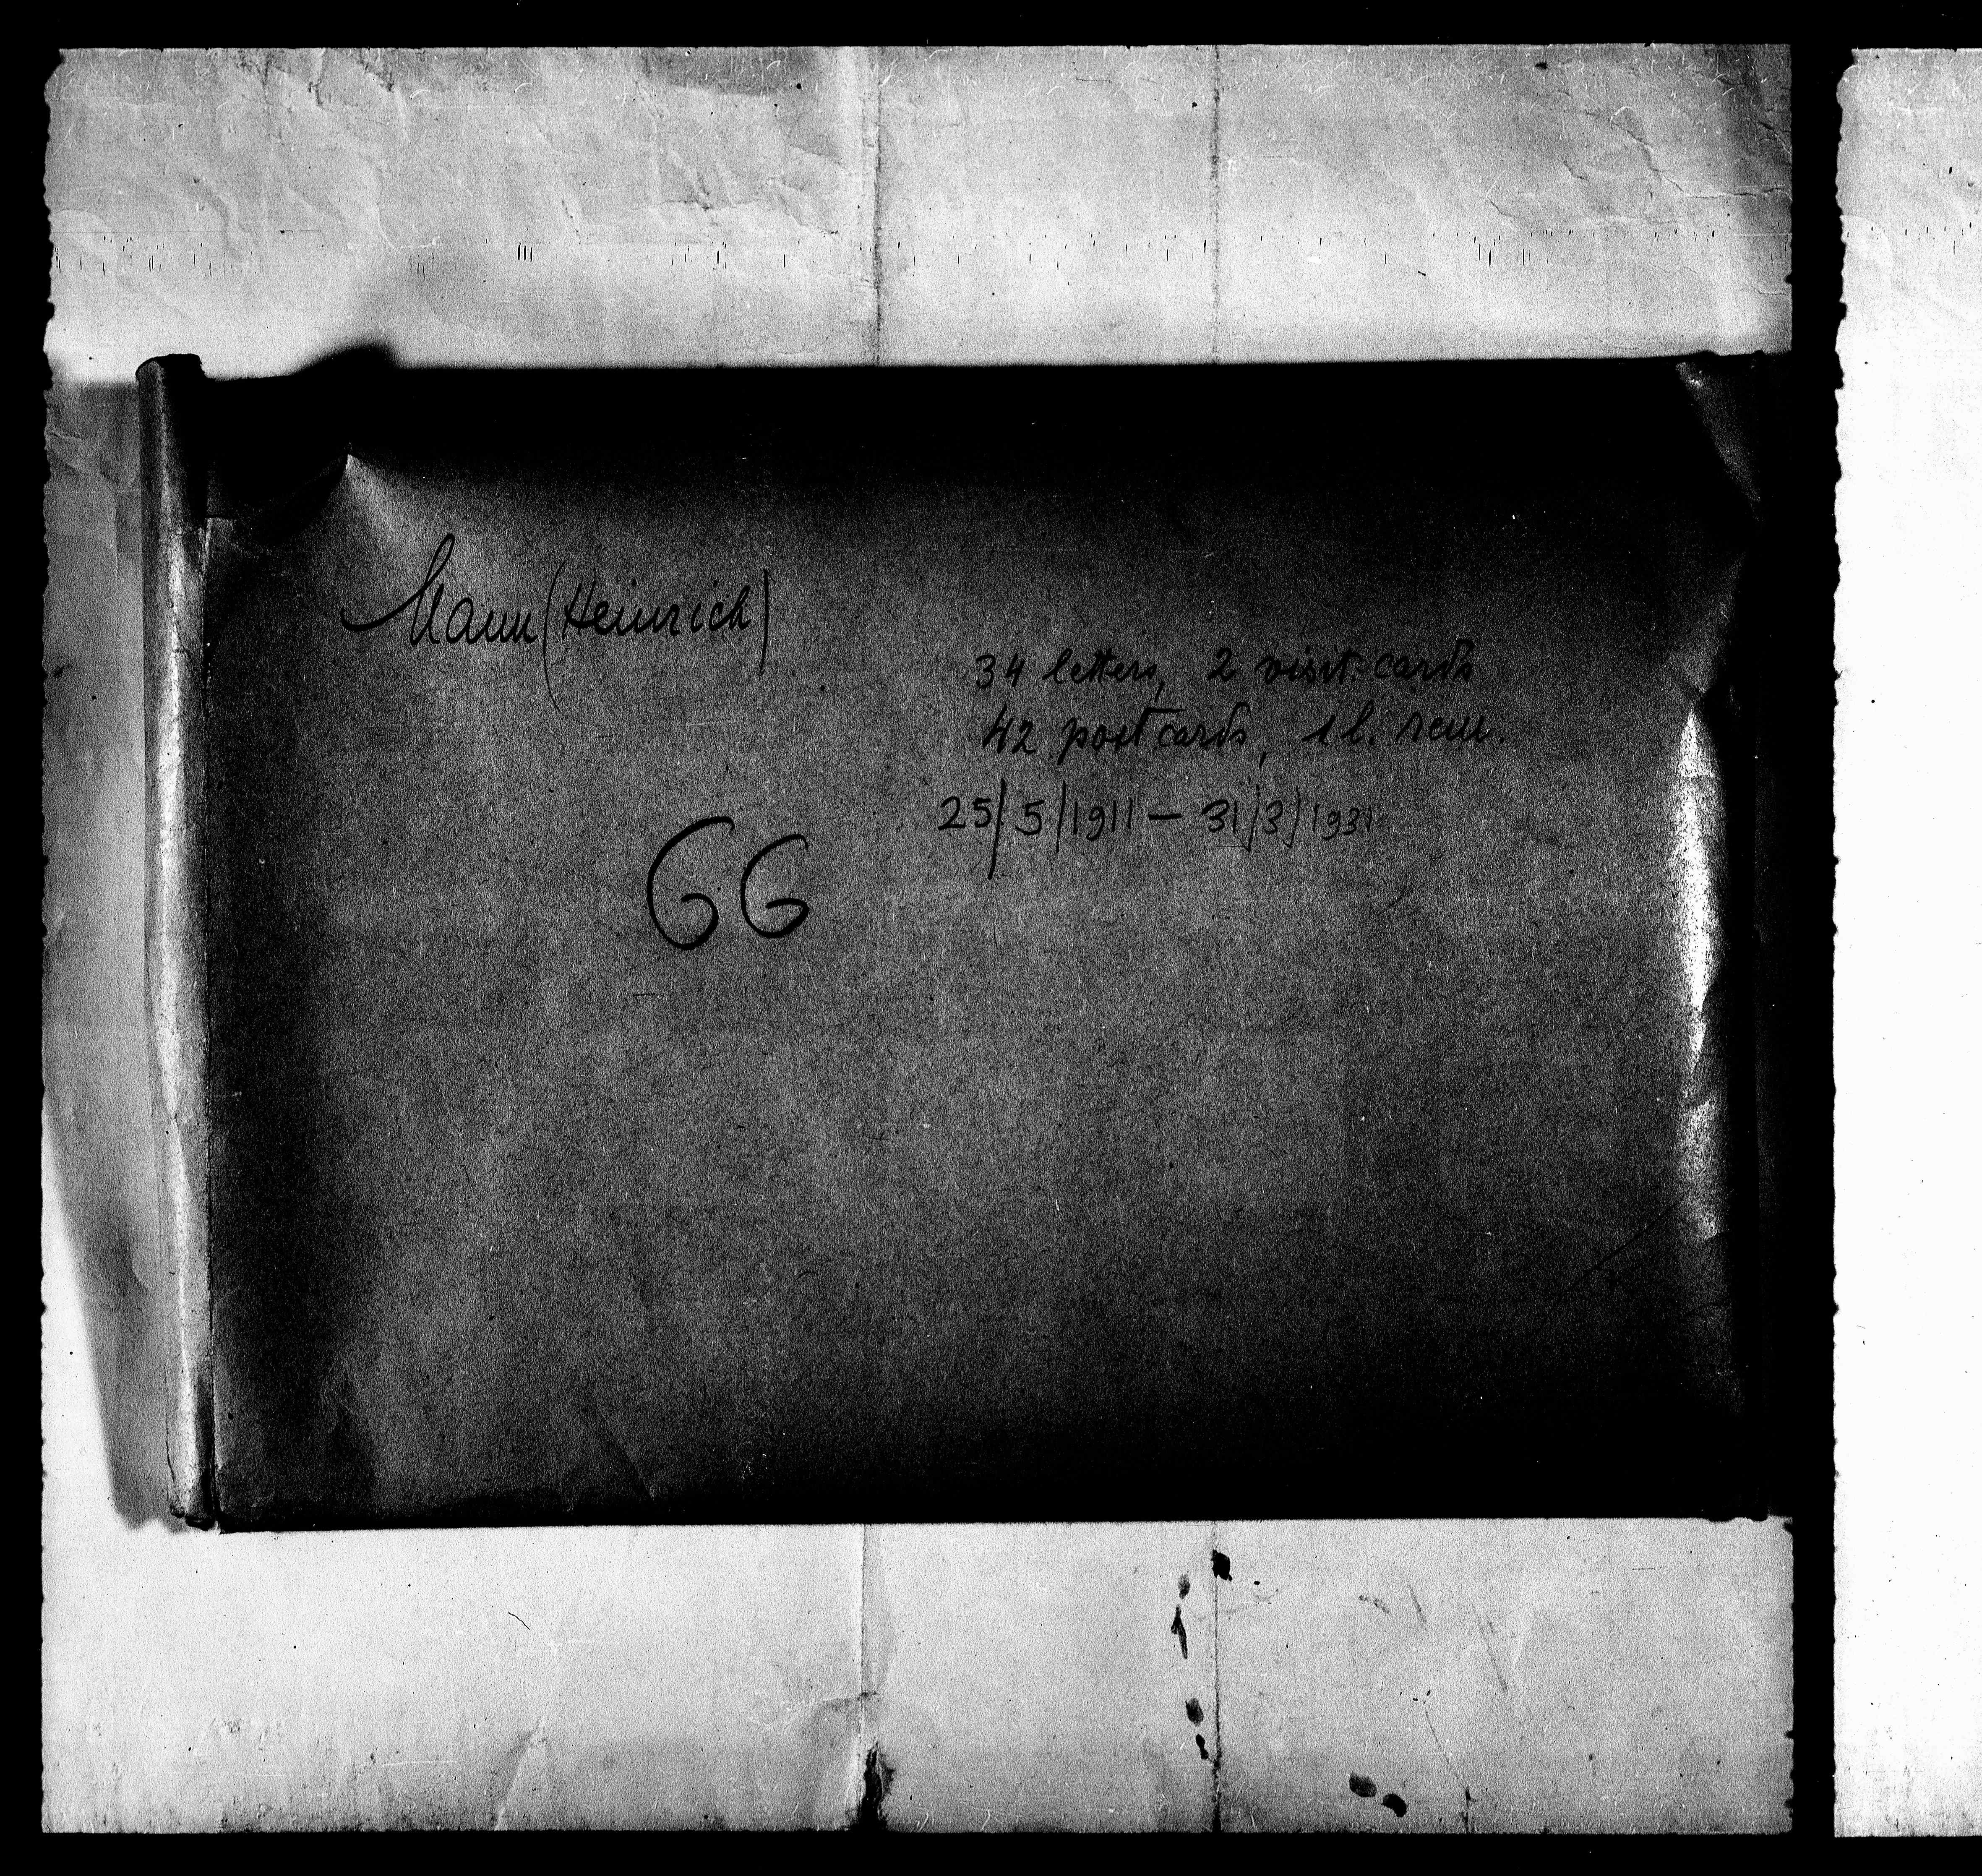 Mann (Heinrich)
34 letters, 2 visit. cards
42 postcards, 1 l. rem.
25/5/1911 – 31/3/1931
GG